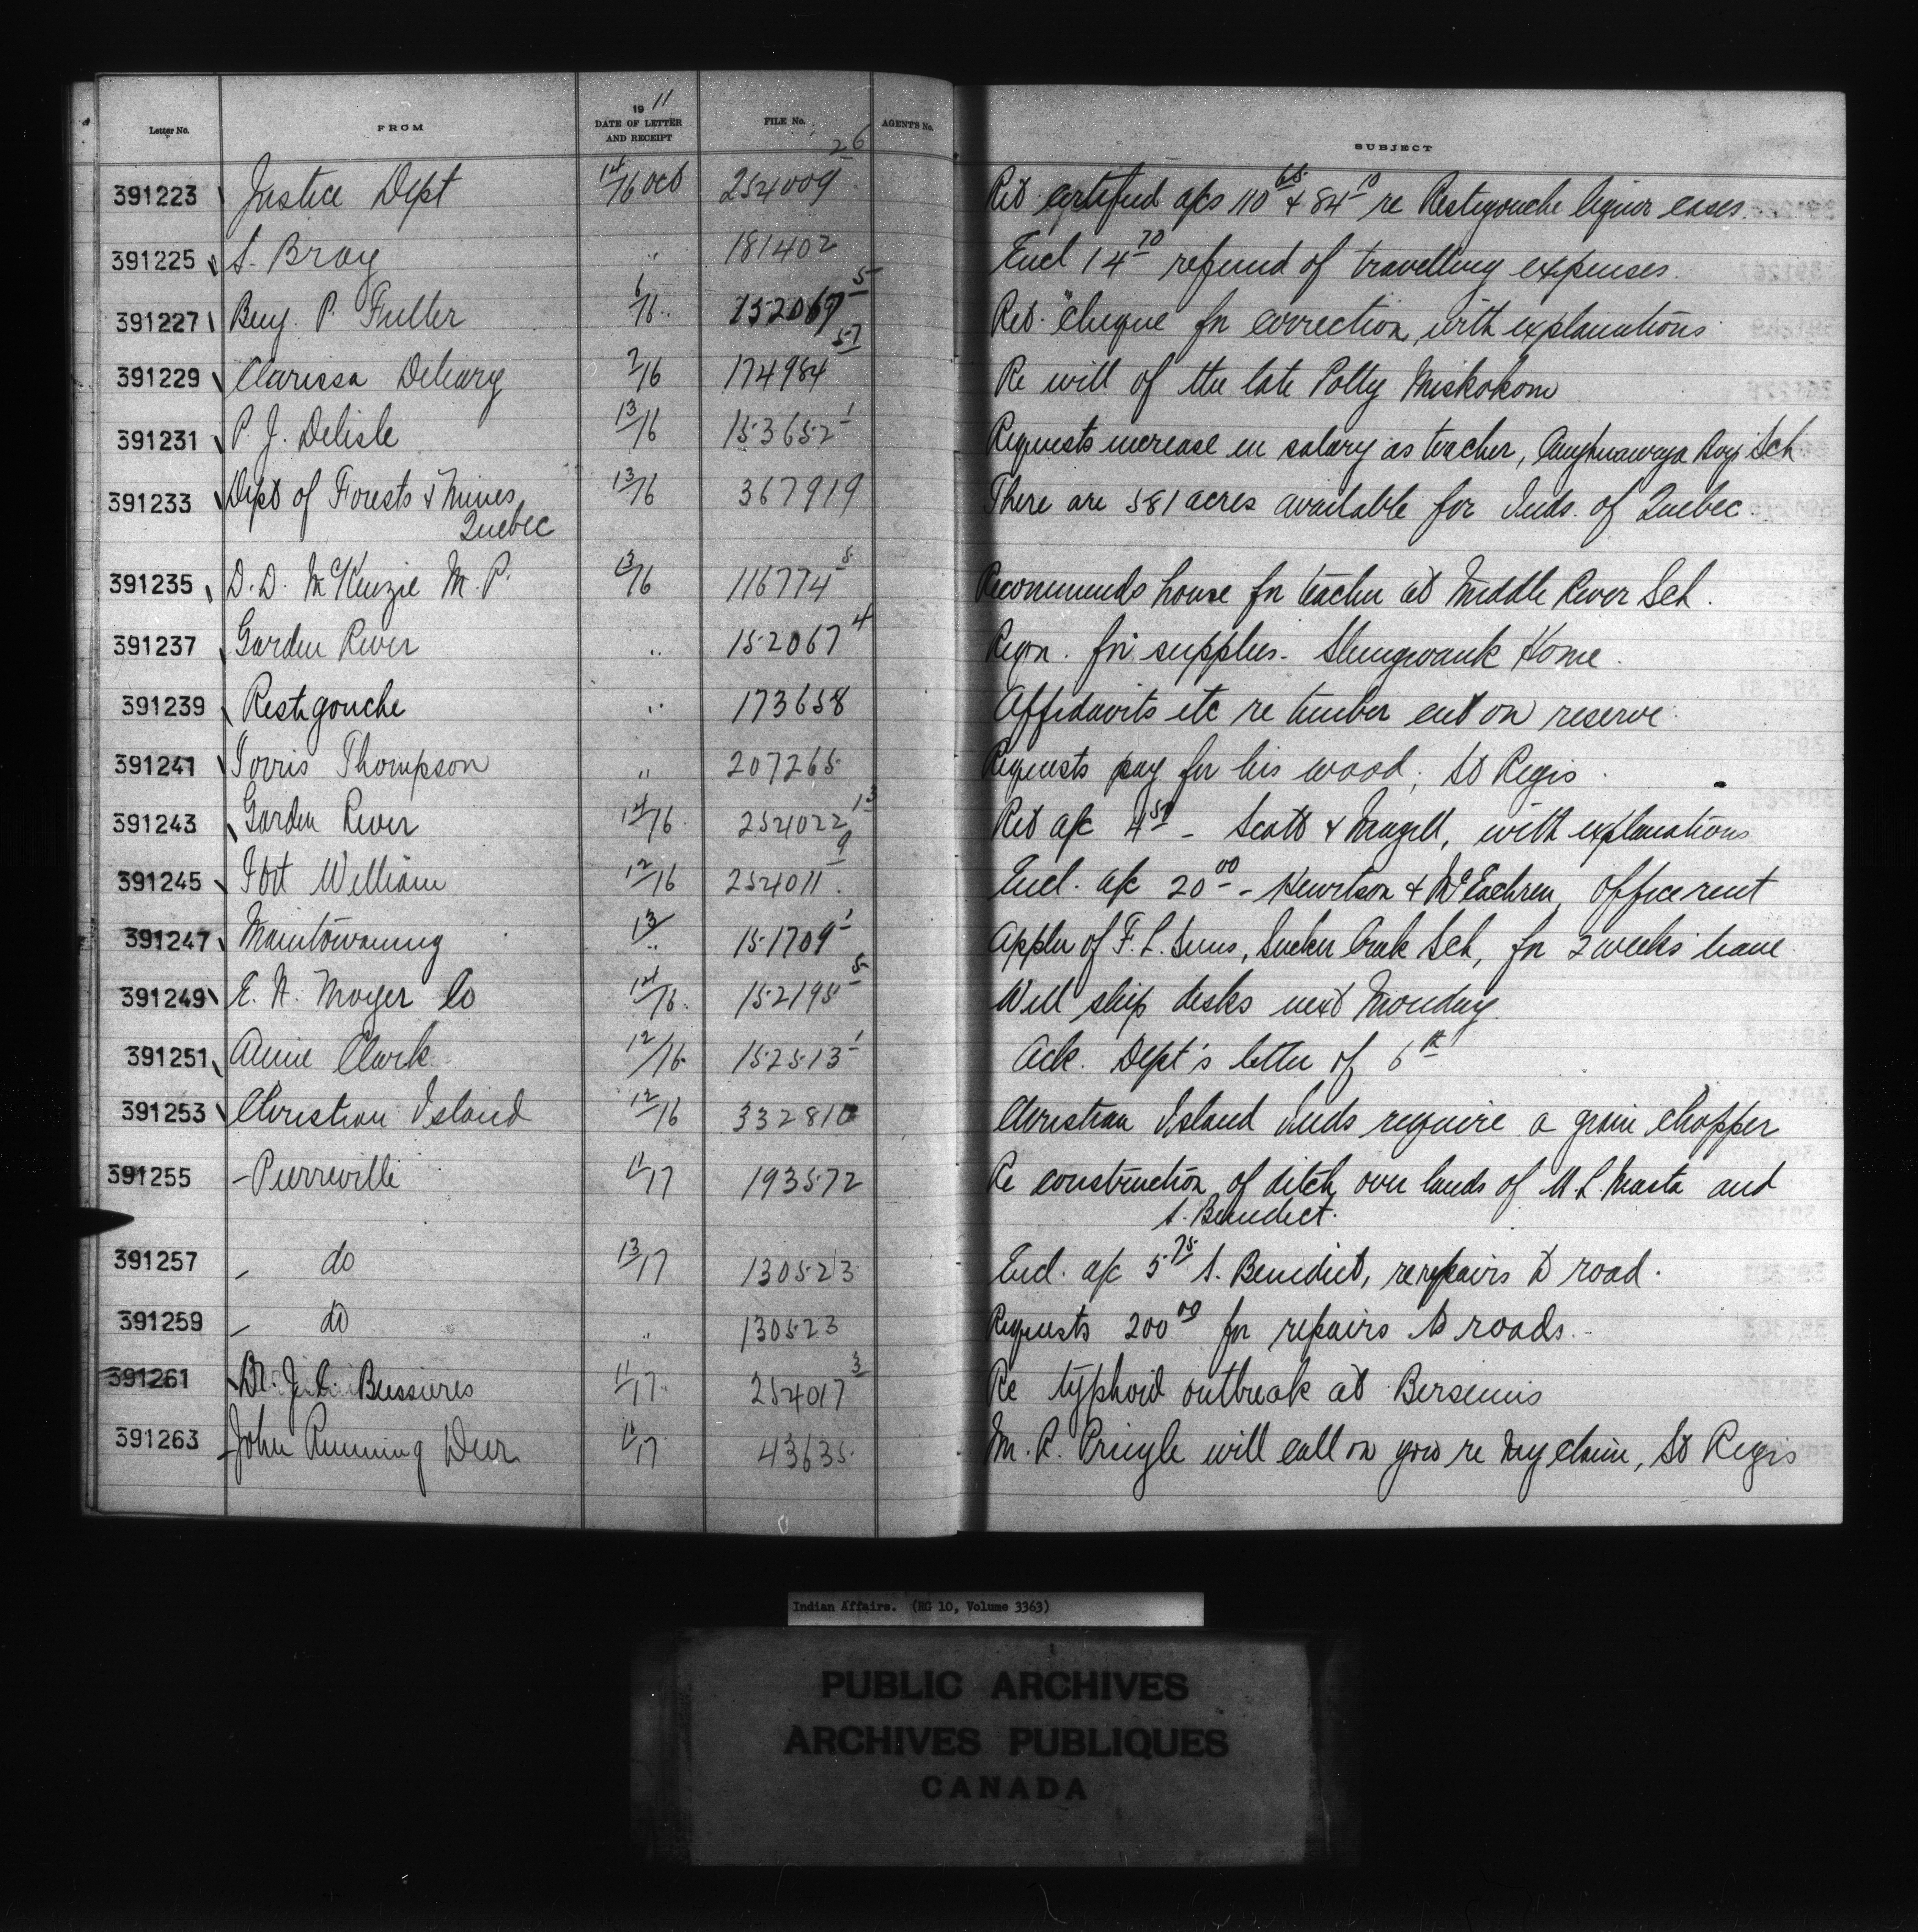 Letter No. FROM 1911 DATE OF LETTER AND RECEIPT FILE No. AGENT'S No. SUBJECT
391223 Justice Dept 14/16 Oct 254009 26 Ret certified a/cs 110 65 & 84 10 re Restigouche liquor cases.
391225 S. Bray " 181402 Encl 14 70 refund of travelling expenses.
391227 Benj. P. Fuller 6/16 152067 5 Ret. cheque for correction, with explanations
391229 Clarissa 2/16 174984 57 Re will of the late Polly Miskokom
391231 P. J. Delisle 13/16 153652 1 Requests increase in salary as teacher, Caughnawaga Boys Sch
391233 Dept of Forests & Mines, 13/16 367919 There are 581 acres available for Inds. of Quebec.
Quebec
391235 D. D. McKenzie M. P. 13/16 116774 8 Recommends house for teacher at Middle River Sch.
391237 Garden River " 152067 4 Reqn. for supplies - Shingwauk Home.
391239 Restigouche " 173658 Affidavits etc re timber cut on reserve
391241 Thompson " 207265 Requests pay for his wood, St Regis.
391243 Garden River 14/16 254022 13 Ret a/c 4 50 - Scott & Magill, with explanations
391245 Fort William 12/16 254011 9 Encl. a/c 20 00 - Hewitson & McEachren, office rent
391247 Manitowaning 13/" 151709 1 Appln of F. L. Sims, Sucker Creek Sch, for 2 weeks leave.
391249 E. N. Moyer Co 14/16 152195 5 Will ship desks next Monday.
391251 Annie Clark 12/16 152513 1 Ack. Dept's letter of 6th
391253 Christian Island 12/16 332810 Christian Island Inds require a grain chopper
391255 - Pierreville 11/17 193572 Re construction of ditch over lands of M. L. Masta and
S. Benedict.
391257 - do 13/17 130523 Encl. a/c 5 75 S. Benedict, re repairs to road.
391259 - do " 130523 Requests 200 00 for repairs to roads.
391261 Dr. J. C. Bussieres 11/17 254017 3 Re typhoid outbreak at Bersimis
391263 John Running Deer 11/17 43635 M. R. Pringle will call on you re my claim, St Regis
Indian Affairs. (RG 10, Volume 3363)
PUBLIC ARCHIVES
ARCHIVES PUBLIQUES
CANADA